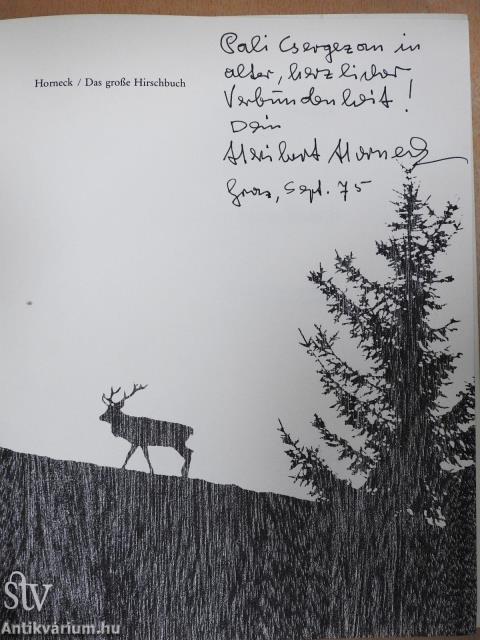 Pali Csergezan in
alter, herzlicher
Verbundenheit!
Dein
Heribert Horneck
Graz, Sept. 75
Horneck / Das große Hirschbuch
stv
Antikvárium.hu